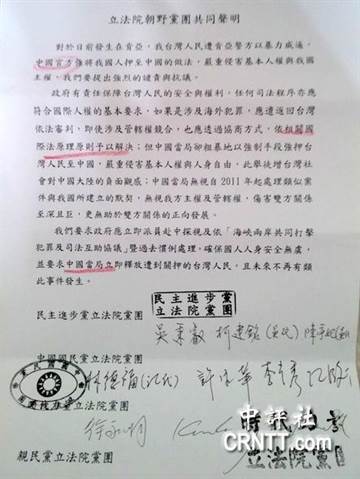 立法院朝野黨團共同聲明
對於日前發生在肯亞，我台灣人民遭肯亞警方以暴力威逼，
中國官方強將我國人押至中國的做法，嚴重侵害基本人權與我國
主權，我們要提出強烈的譴責與抗議。
政府有責任保障台灣人民的安全與權利，任何司法程序亦應
符合國際人權的基本要求，如果是涉及海外犯罪，應遣返回台灣
依法審判，即使涉及管轄權競合，也應透過協商方式，依相關國
際法原理原則予以解決；但中國當局卻粗暴地以強制手段強押台
灣人民至中國，嚴重侵害基本人權與人身自由，此舉徒增台灣社
會對中國大陸的負面觀感；中國當局無視自2011年起處理類似案
件與我國所建立的默契，無視我方主權及管轄權，傷害雙方關係
至深且巨，更無助於雙方關係的正向發展。
我們要求政府應立即派員赴中探視及依「海峽兩岸共同打擊
犯罪及司法互助協議」暨過去慣例處理，確保國人人身安全無虞，
並要求中國當局立即釋放遭到關押的台灣人民，且未來不再有類
此事件發生。
民主進步黨
立法院黨團
民主進步黨立法院黨團
吳秉叡 柯建銘
中國國民黨立法院黨團
林德福
徐永明
時代力量
立法院黨團
親民黨立法院黨團
中評社
CRNTT.com